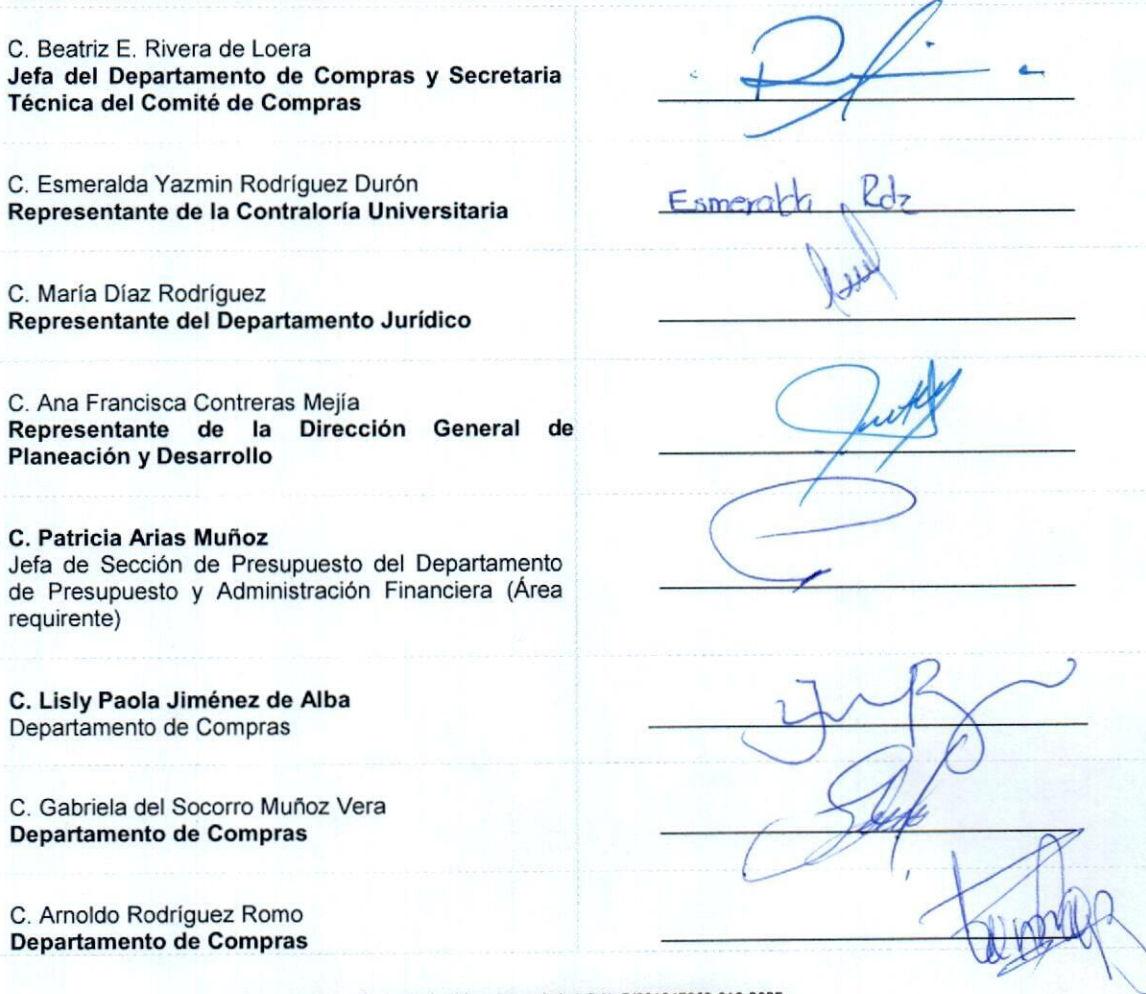 C. Beatriz E. Rivera de Loera
Jefa del Departamento de Compras y Secretaria
Técnica del Comité de Compras
C. Esmeralda Yazmin Rodríguez Durón
Representante de la Contraloría Universitaria
Esmeralda Rdz
C. María Díaz Rodríguez
Representante del Departamento Jurídico
C. Ana Francisca Contreras Mejía
Representante de la Dirección General de
Planeación y Desarrollo
C. Patricia Arias Muñoz
Jefa de Sección de Presupuesto del Departamento
de Presupuesto y Administración Financiera (Área
requirente)
C. Lisly Paola Jiménez de Alba
Departamento de Compras
C. Gabriela del Socorro Muñoz Vera
Departamento de Compras
C. Arnoldo Rodríguez Romo
Departamento de Compras